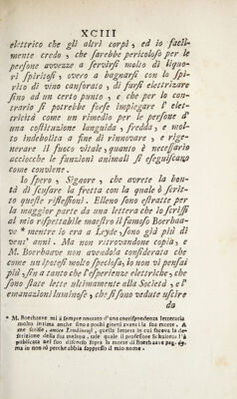 XCIII
elettrico che gli altri corpi, ed io facil-
mente credo, che sarebbe pericoloso per le
persone avvezze a servirsi molto di liquo-
ri spiritosi, overo a bagnarsi con lo spi-
rito di vino canforato, di farsi elettrizare
sino ad un certo punto, e che per lo con-
trario si potrebbe forse impiegare l' elet-
tricità come un rimedio per le persone d'
una costituzione languida, fredda, e mol-
to indebolita a fine di rinnovare, e rige-
nerare il fuoco vitale, quanto è necessario
acciocche le funzioni animali si eseguiscano
come conviene.
Io spero, Signore, che avrete la bon-
tà di scusare la fretta con la quale è scrit-
to queste riflessioni. Elleno sono estratte per
la maggior parte da una lettera che io scrissi
al mio rispettabile maestro il famoso Boerhaa-
ve * mentre io era a Leyde, sono già più di
vent' anni. Ma non ritrovandone copia, e
M. Boerhaave non avendola considerata che
come un ipotesi molto speciosa, io non vi pensai
più, sin a tanto che l'esperienze elettriche, che
sono state lette ultimamente alla Società, e l'
emanazioni luminose, che si sono vedute uscire
da
* M. Boerhaave mi à sempre onorato d'una corrispondenza letteraria
molto intima anche sino a pochi giorni avanti la sua morte. A
me scrisse, amice Eruditissime, questa lettera in cui faceva la de-
scrizione della sua malattia, tale quale il professore Schultens l'à
pubblicata nel suo discorso sopra la morte di Boerhaave pag.
ma io non sò perchè abbia soppresso il mio nome.